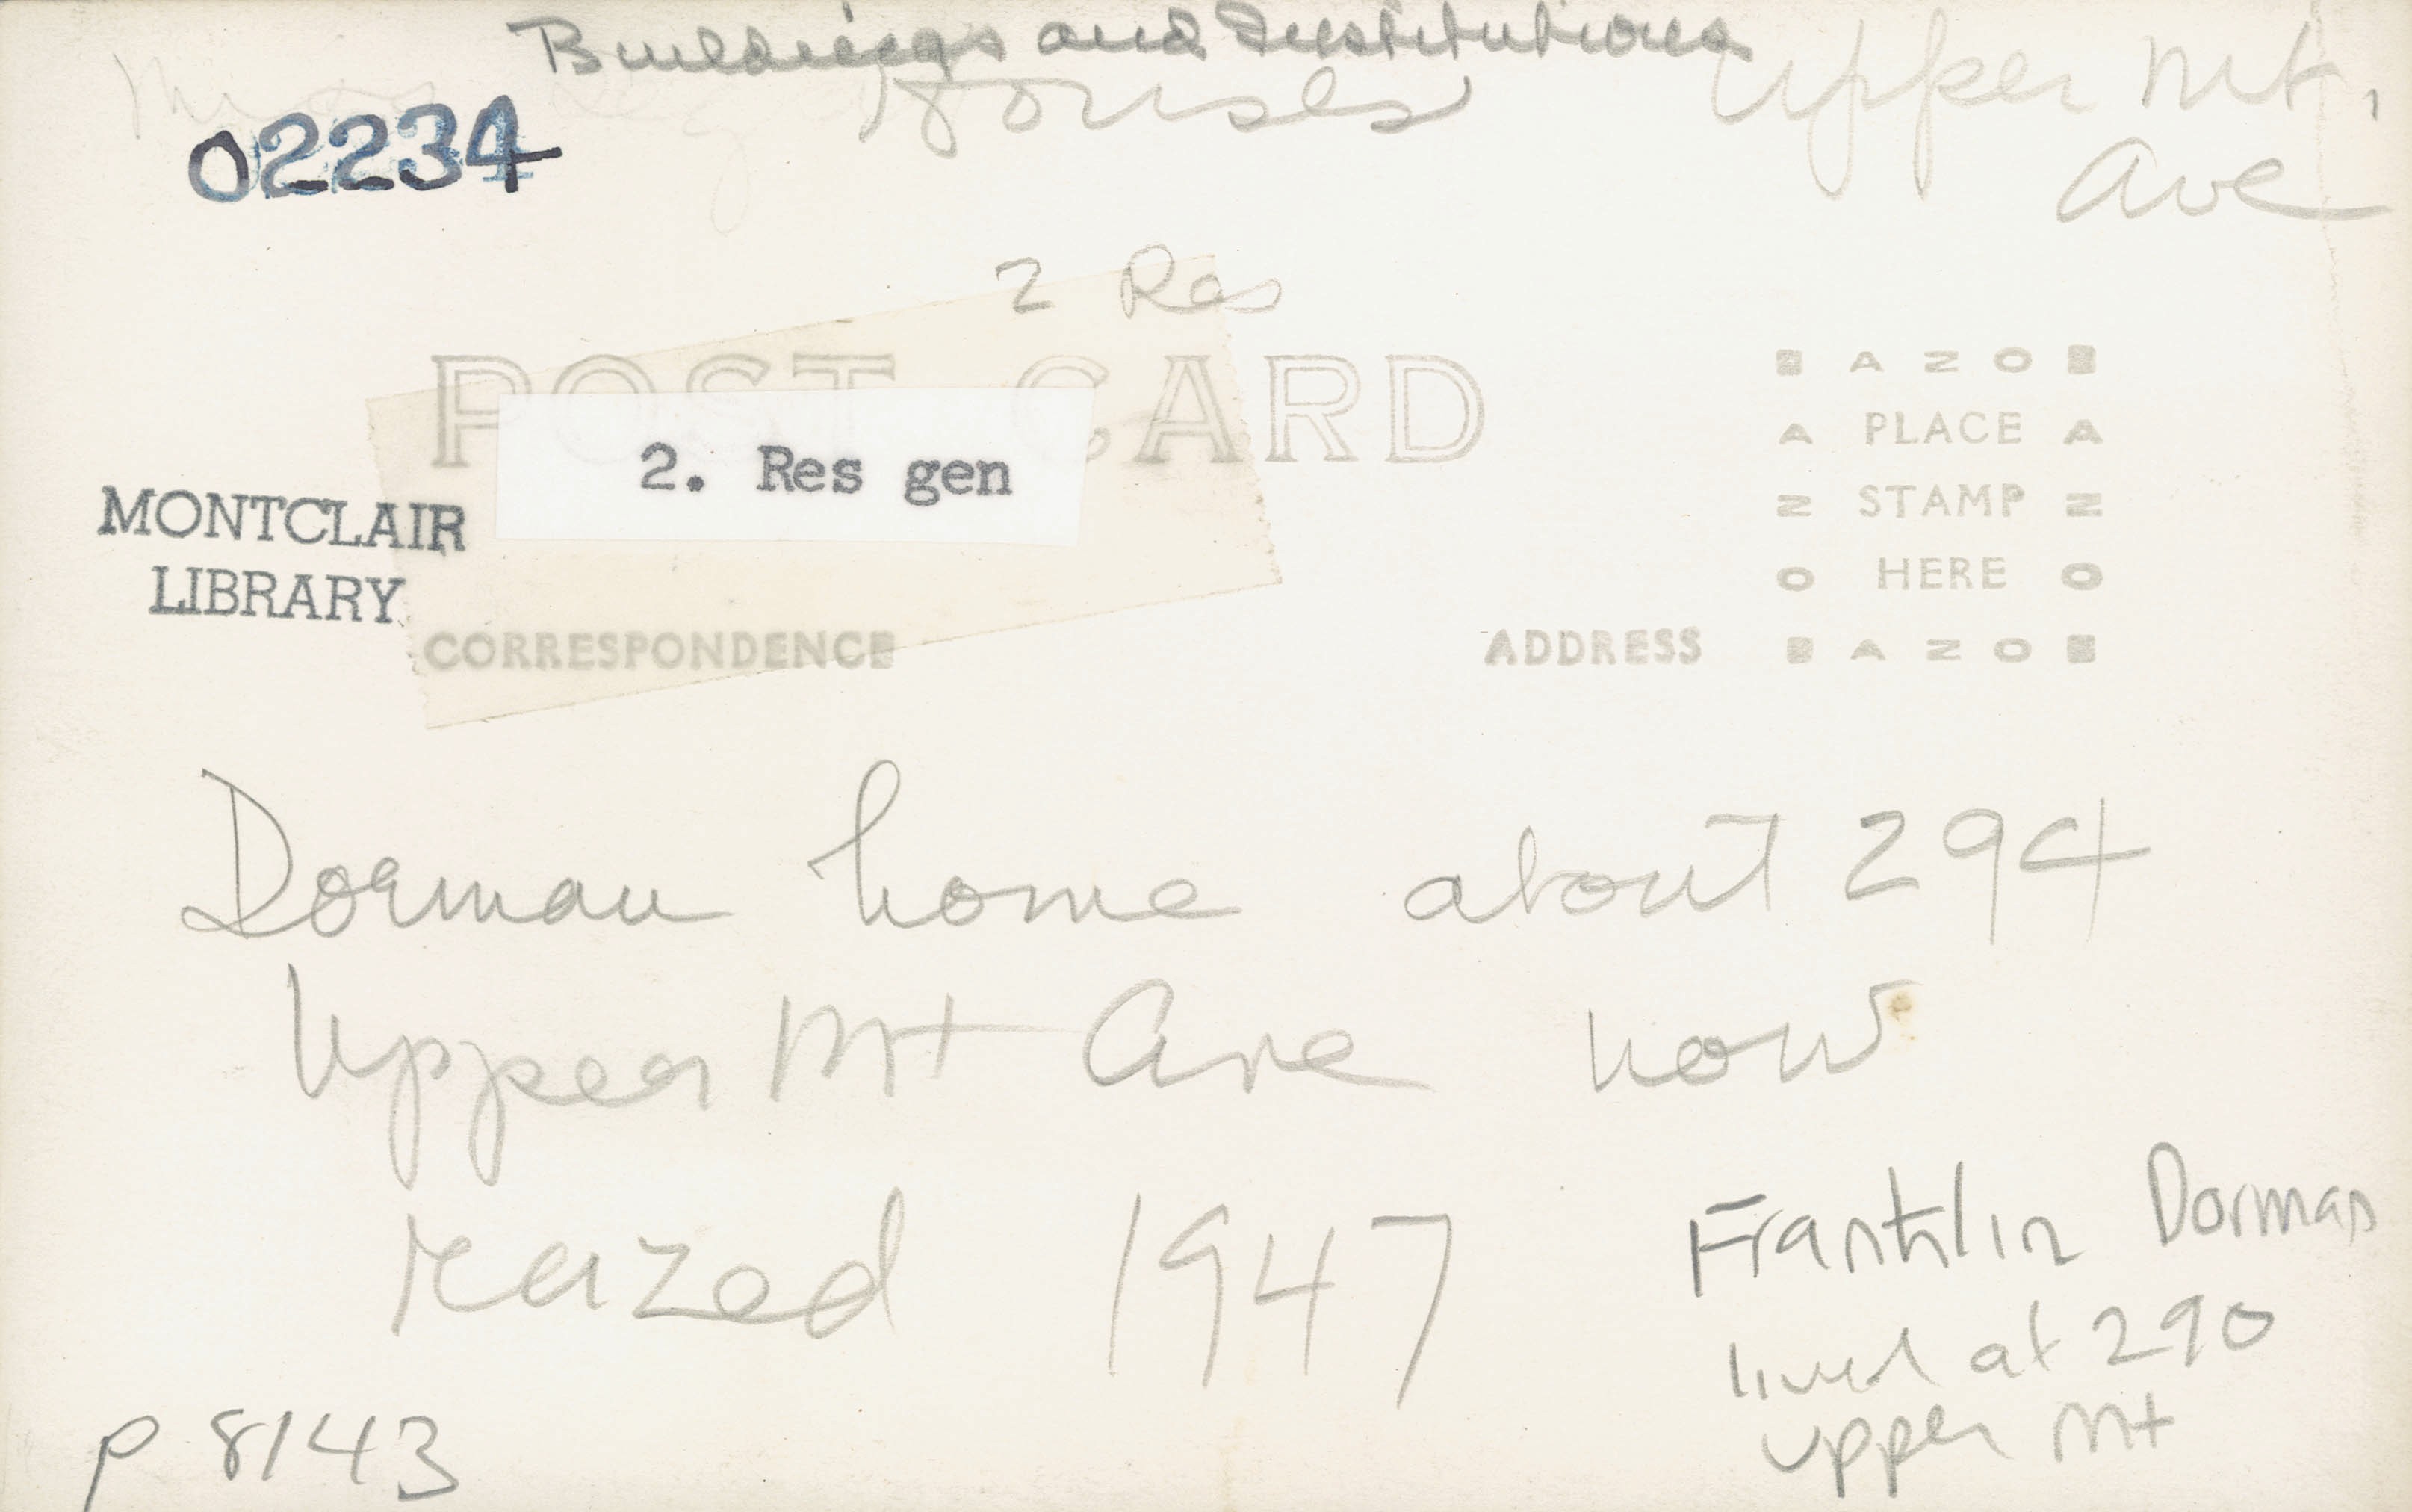 Buildings and Institutions
Houses
Upper Mt.
Ave
02234
2 Res
POST CARD
2. Res gen
MONTCLAIR
LIBRARY
CORRESPONDENCE
ADDRESS
AZO
A PLACE A
Z STAMP Z
O HERE O
AZO
Dorman home about 294
Upper Mt Ave now
razed 1947
Franklin Dorman
lived at 290
upper Mt
p 8143